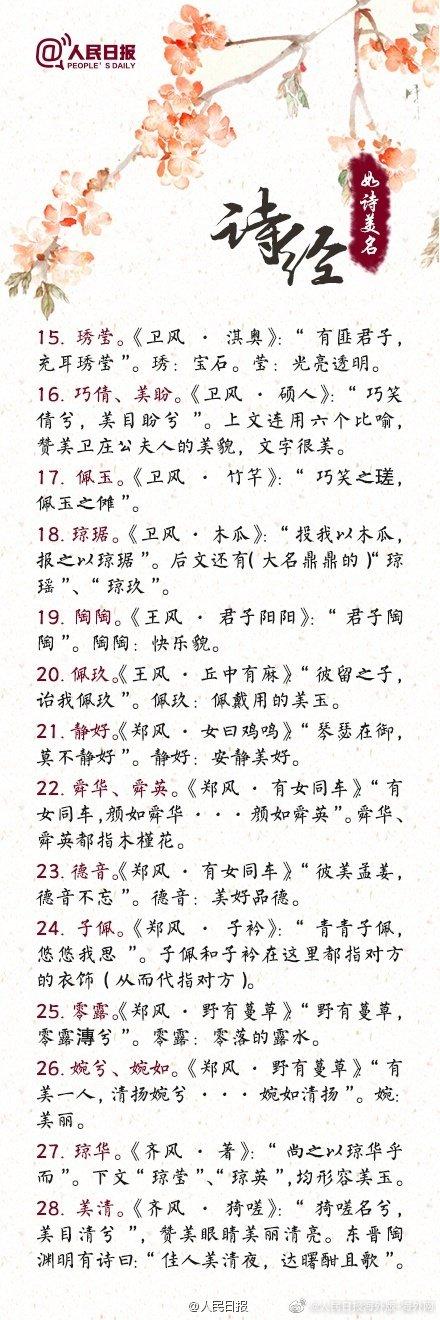 @人民日报
PEOPLE'S DAILY
诗经
如诗美名
15. 琇莹。《卫风 · 淇奥》：“ 有匪君子，
充耳琇莹 ”。琇：宝石。莹：光亮透明。
16. 巧倩、美盼。《卫风 · 硕人》：“ 巧笑
倩兮，美目盼兮 ”。上文连用六个比喻，
赞美卫庄公夫人的美貌，文字很美。
17. 佩玉。《卫风 · 竹竿》：“ 巧笑之瑳，
佩玉之傩”。
18. 琼琚。《卫风 · 木瓜》：“ 投我以木瓜，
报之以琼琚 ”。后文还有( 大名鼎鼎的 )“ 琼
瑶 ”、“ 琼玖 ”。
19. 陶陶。《王风 · 君子阳阳》：“ 君子陶
陶 ”。陶陶：快乐貌。
20. 佩玖。《王风 · 丘中有麻》“ 彼留之子，
诒我佩玖 ”。佩玖：佩戴用的美玉。
21. 静好。《郑风 · 女曰鸡鸣》“ 琴瑟在御，
莫不静好 ”。静好：安静美好。
22. 舜华、舜英。《郑风 · 有女同车》“ 有
女同车，颜如舜华 · · · 颜如舜英 ”。舜华、
舜英都指木槿花。
23. 德音。《郑风 · 有女同车》“ 彼美孟姜，
德音不忘 ”。德音：美好品德。
24. 子佩。《郑风 · 子衿》：“ 青青子佩，
悠悠我思 ”。子佩和子衿在这里都指对方
的衣饰 ( 从而代指对方 )。
25. 零露。《郑风 · 野有蔓草》“ 野有蔓草，
零露漙兮 ”。零露：零落的露水。
26. 婉兮、婉如。《郑风 · 野有蔓草》“ 有
美一人，清扬婉兮 · · · 婉如清扬 ”。婉：
美丽。
27. 琼华。《齐风 · 著》：“ 尚之以琼华乎
而 ”。下文“ 琼莹 ”、“ 琼英 ”，均形容美玉。
28. 美清。《齐风 · 猗嗟》：“ 猗嗟名兮，
美目清兮 ”，赞美眼睛美丽清亮。东晋陶
渊明有诗曰：“ 佳人美清夜，达曙酣且歌 ”。
@人民日报
@人民日报海外版-海外网